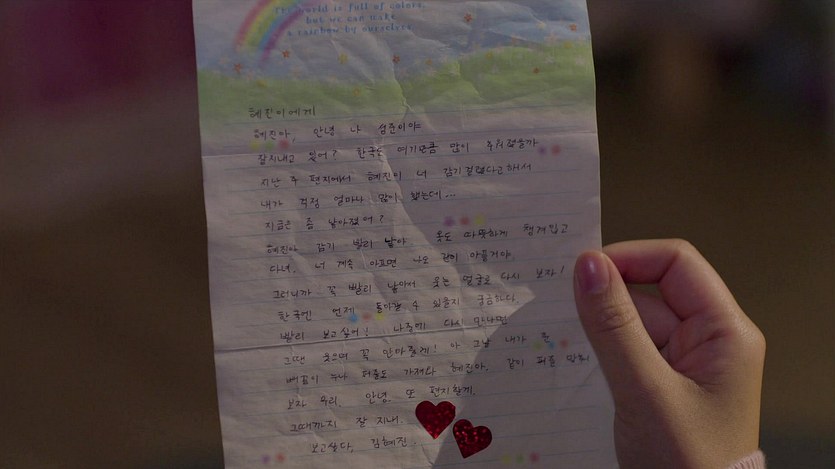 The world is full of colors,
but we can make
a rainbow by ourselves.
혜진이에게
혜진아, 안녕 나 성준이야
잘지내고 있어? 한국도 여기만큼 많이 추워졌을까
지난 주 편지에서 혜진이 너 감기걸렸다고해서
내가 걱정 얼마나 많이 했는데...
지금은 좀 나아졌어?
혜진아 감기 빨리 낳아 옷도 따뜻하게 챙겨입고
다녀. 너 계속 아프면 나도 같이 아플거야.
그러니까 꼭 빨리 낳아서 웃는 얼굴로 다시 보자!
한국엔 언제 돌아갈 수 있을지 궁금하다.
빨리 보고싶어! 나중에 다시 만나면
그땐 웃으며 꼭 안아줄게! 아 그날 내가
빼꼼이 누나 퍼즐도 가져와 혜진아. 같이 퍼즐 맞춰
보자 우리. 안녕. 또 편지할게.
그때까지 잘 지내.
보고싶다, 김혜진